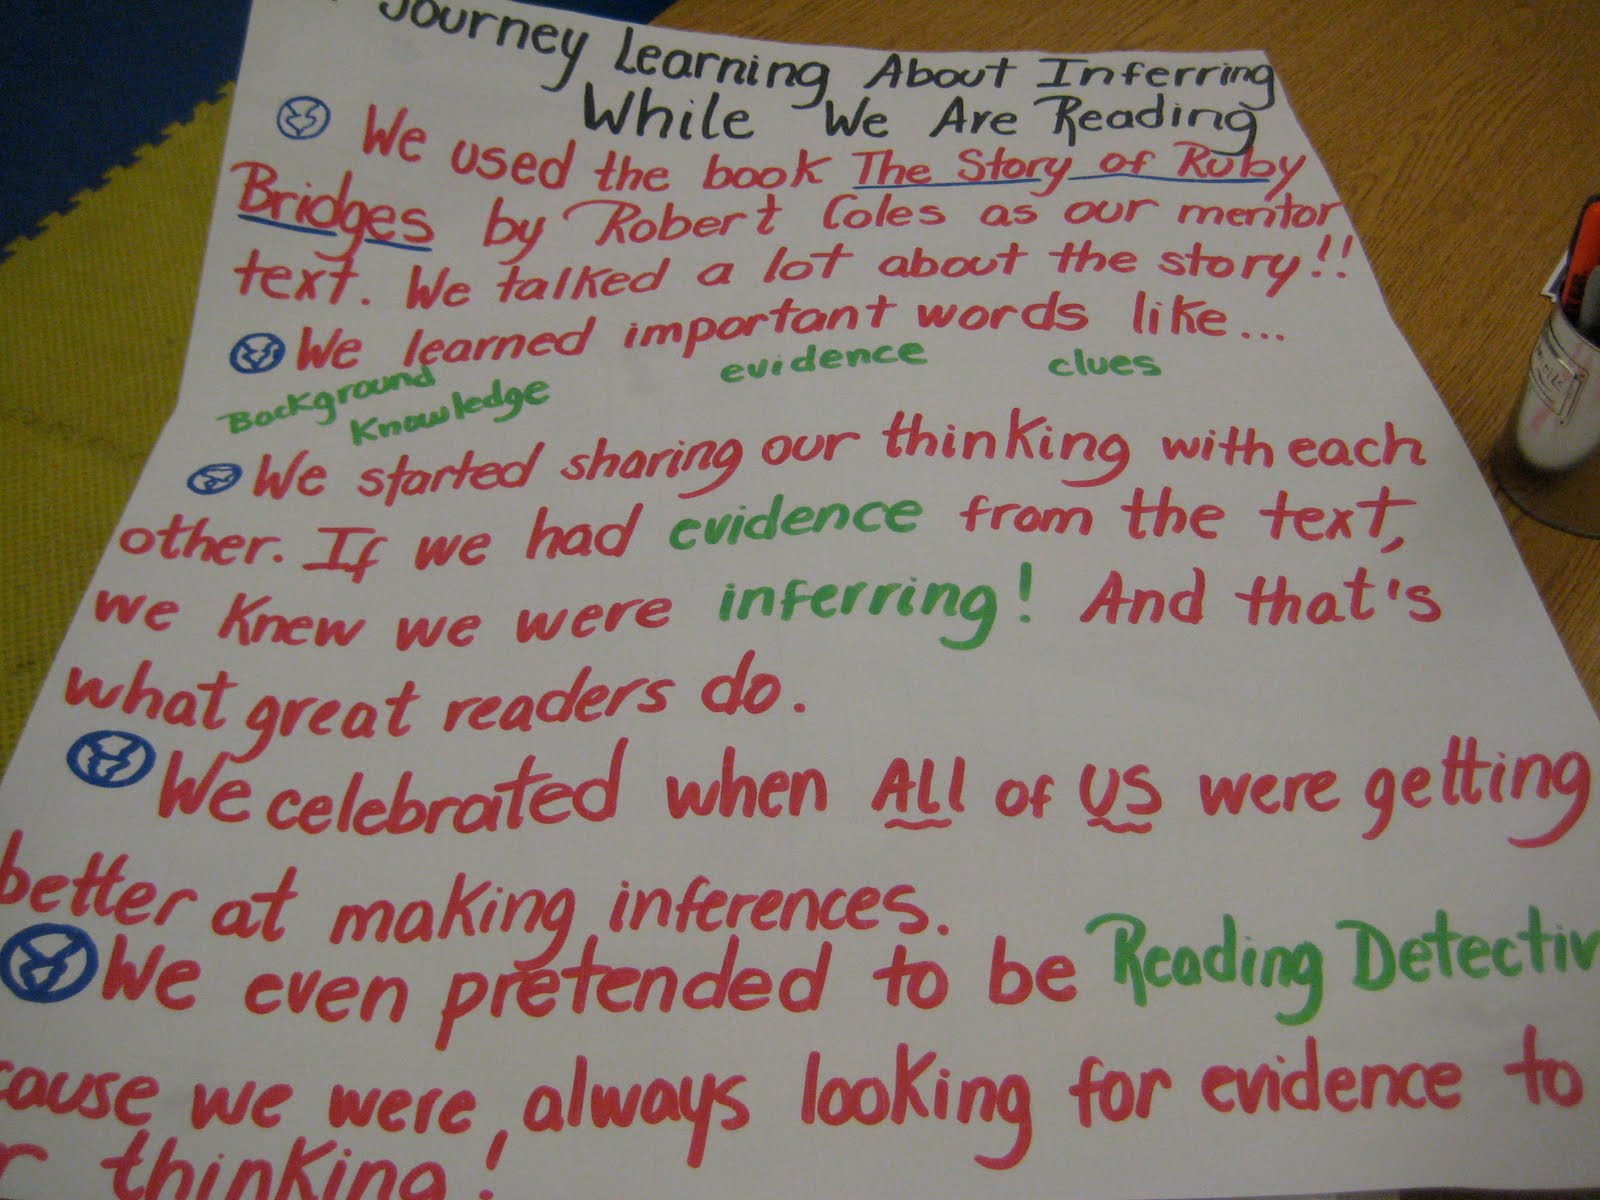 Journey Learning About Inferring
While We Are Reading
We used the book The Story of Ruby
Bridges by Robert Coles as our mentor
text. We talked a lot about the story!!
We learned important words like...
Background evidence clues
Knowledge
We started sharing our thinking with each
other. If we had evidence from the text,
we knew we were inferring! And that's
what great readers do.
We celebrated when All of US were getting
better at making inferences.
We even pretended to be Reading Detectiv
cause we were always looking for evidence to
r thinking!